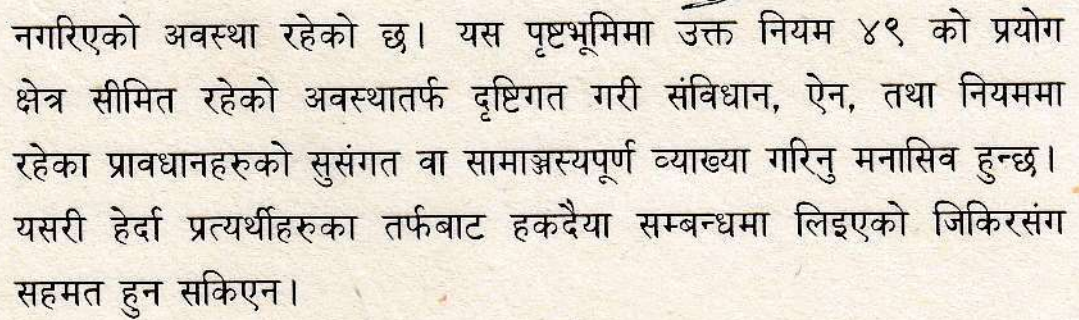 नगरिएको अवस्था रहेको छ। यस पृष्टभूमिमा उक्त नियम ४९ को प्रयोग
क्षेत्र सीमित रहेको अवस्थातर्फ दृष्टिगत गरी संविधान, ऐन, तथा नियममा
रहेका प्रावधानहरुको सुसंगत वा सामाञ्जस्यपूर्ण व्याख्या गरिनु मनासिव हुन्छ।
यसरी हेर्दा प्रत्यर्थीहरुका तर्फबाट हकदैया सम्बन्धमा लिइएको जिकिरसंग
सहमत हुन सकिएन।